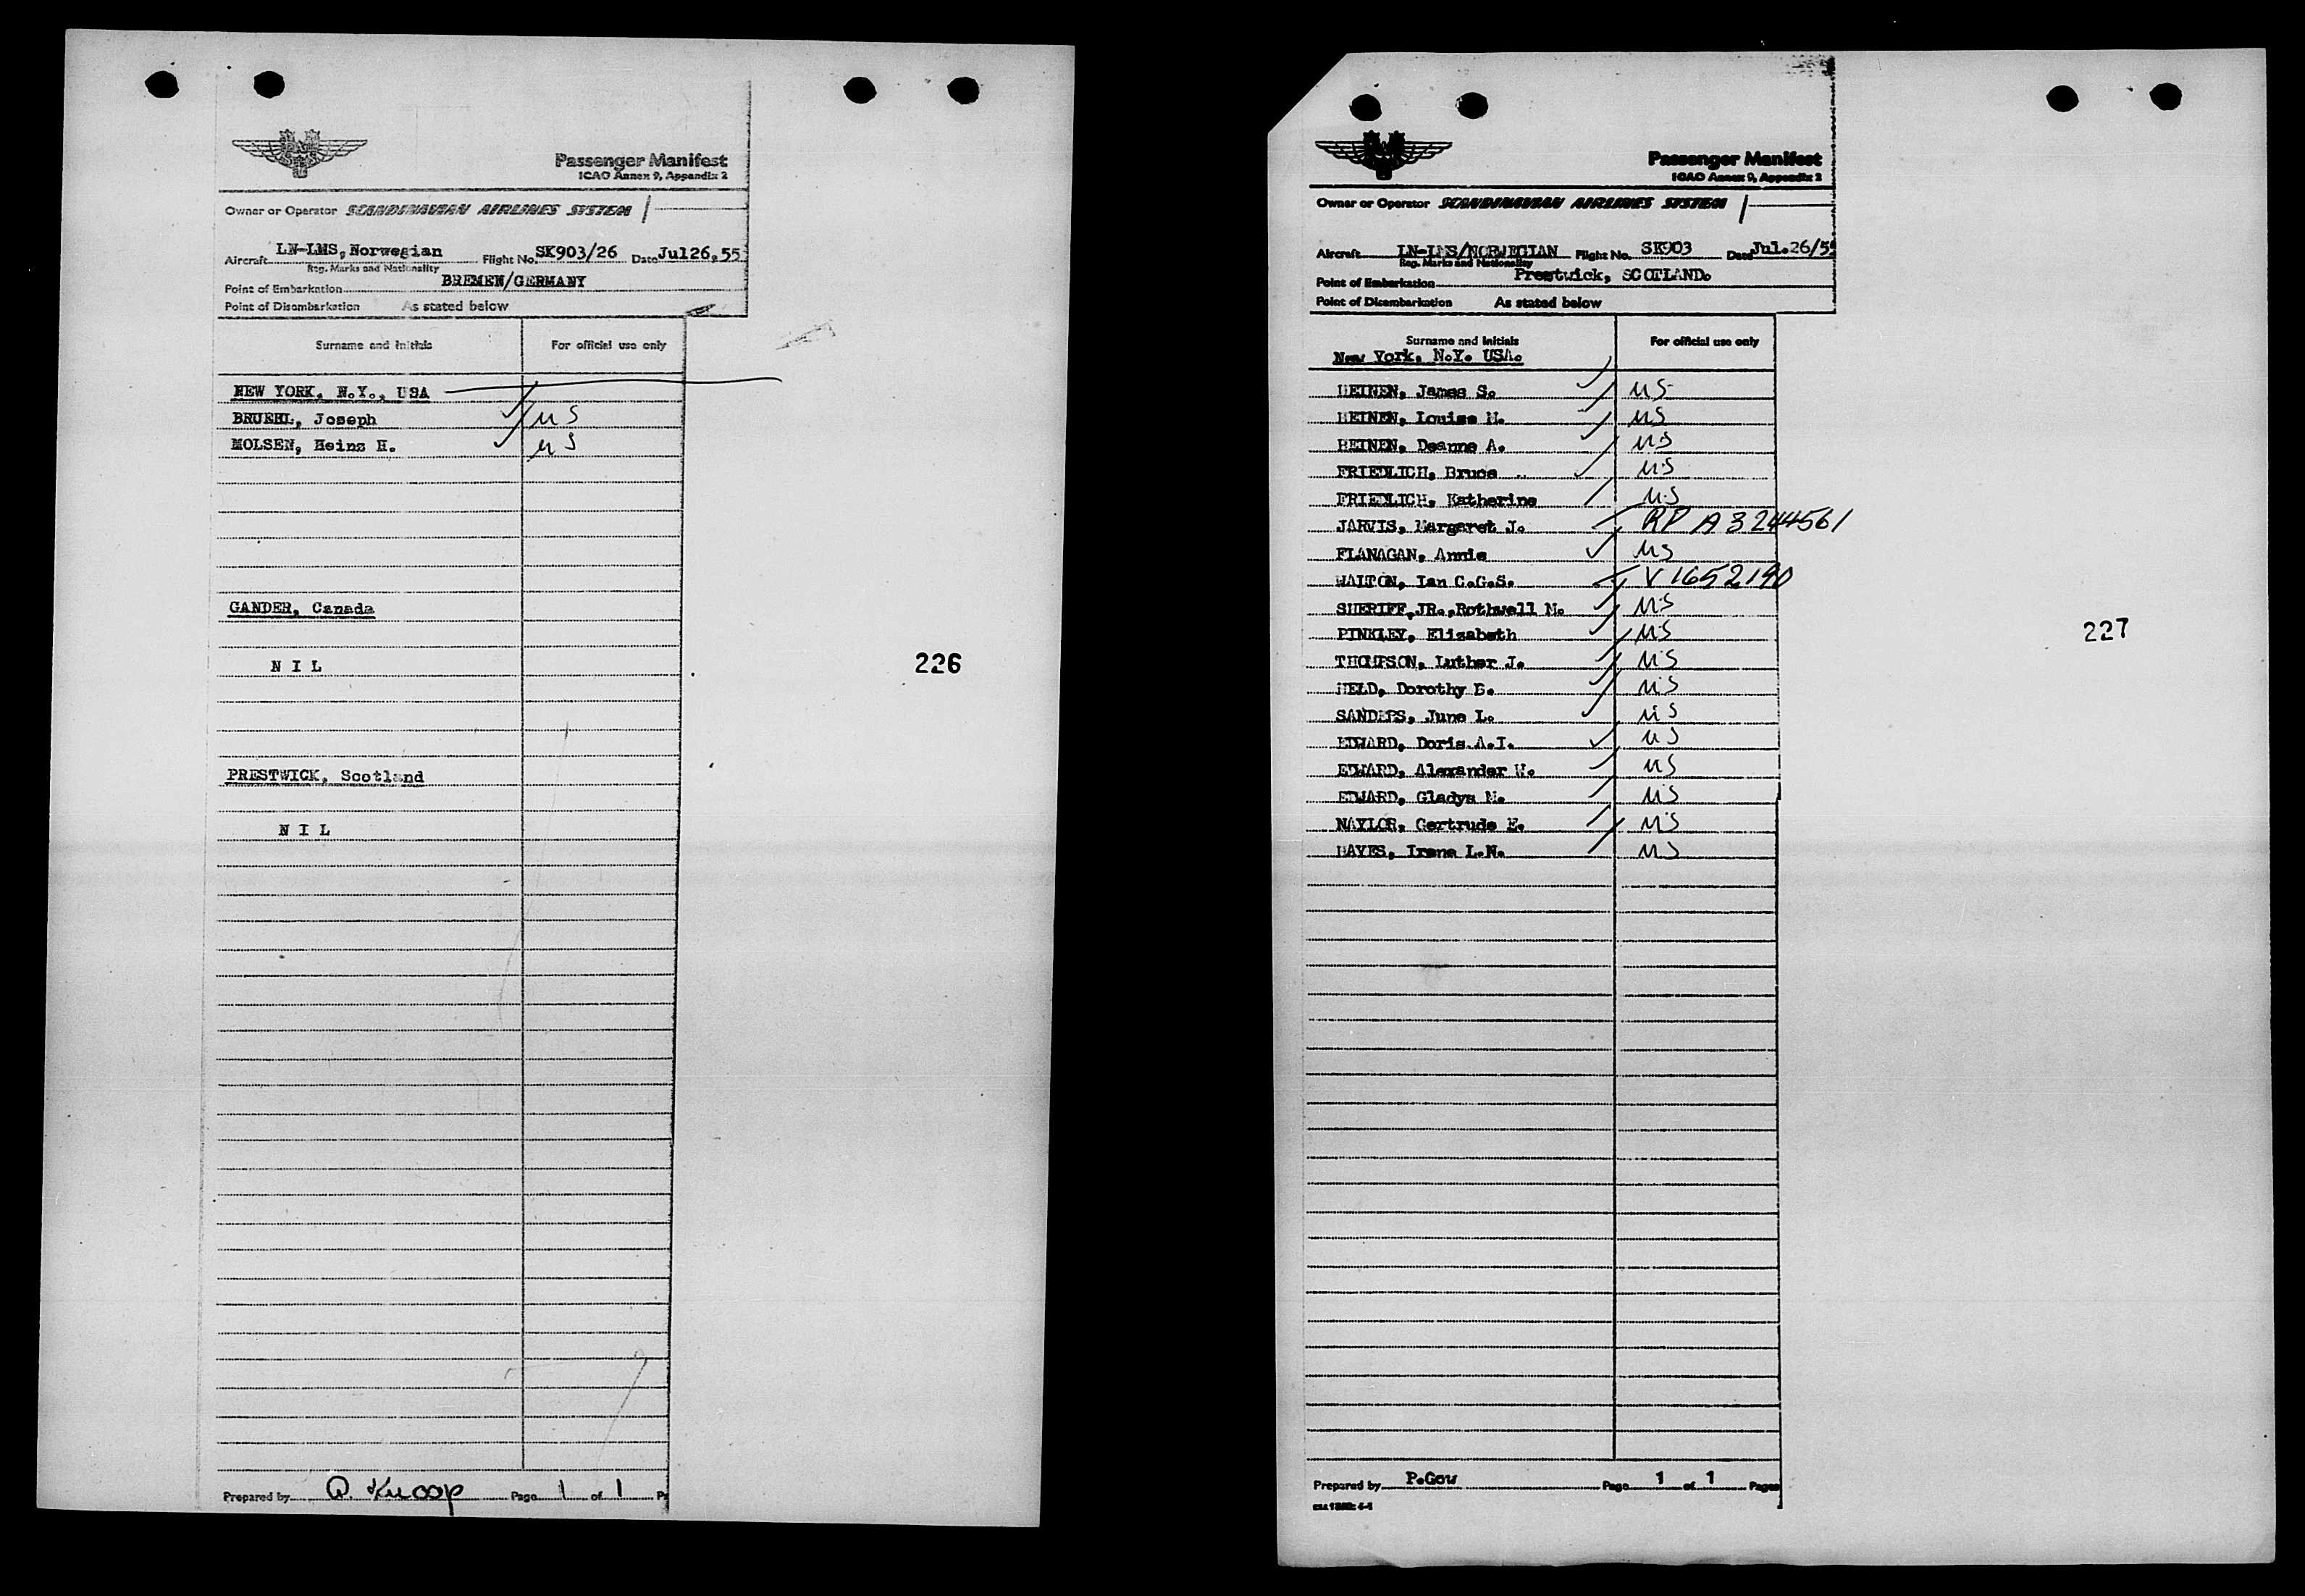 Passenger Manifest
ICAO Annex 9, Appendix 2
Owner or Operator SCANDINAVIAN AIRLINES SYSTEM
Aircraft LN-LMS, Norwegian Flight No. SK903/26 Date Jul26,55
Reg. Marks and Nationality
Point of Embarkation BREMEN/GERMANY
Point of Disembarkation As stated below
Surname and Initials For official use only
NEW YORK, N.Y., USA
BRUEHL, Joseph US
MOLSEN, Heinz H. US
GANDER, Canada
N I L
226
PRESTWICK, Scotland
N I L
Prepared by Knoop Page 1 of 1
Passenger Manifest
ICAO Annex 9, Appendix 2
Owner or Operator SCANDINAVIAN AIRLINES SYSTEM
Aircraft LN-LMS/NORWEGIAN Flight No. SK903 Date Jul.26/55
Reg. Marks and Nationality
Point of Embarkation Prestwick, SCOTLAND.
Point of Disembarkation As stated below
Surname and Initials For official use only
New York, N.Y. USA.
HEINEN, James S. US
HEINEN, Louise M. US
HEINEN, Deanne A. US
FRIEDLICH, Bruce US
FRIEDLICH, Katherine US
JARVIS, Margaret J. RP A3244561
FLANAGAN, Annie US
WALTON, Ian C.G.S. V1652190
SHERIFF, JR., Rothwell M. US
PINKLEY, Elizabeth US
227
THOMPSON, Luther J. US
HELD, Dorothy B. US
SANDERS, June L. US
EDWARD, Doris A.I. US
EDWARD, Alexander W. US
EDWARD, Gladys M. US
NAYLOR, Gertrude E. US
HAYES, Irene L.N. US
Prepared by P.Gow Page 1 of 1 Pages